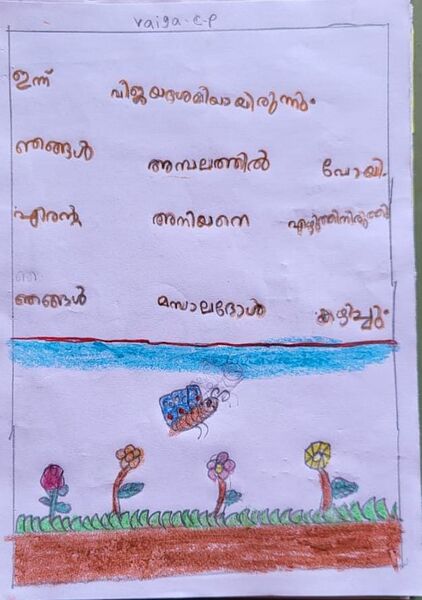 vaiga.c.p
ഇന്ന് വിജയദശമിയായിരുന്നു.
ഞങ്ങൾ അമ്പലത്തിൽ പോയി.
എന്റെ അനിയനെ എഴുത്തിനിരുത്തി
ഞങ്ങൾ മസാലദോശ കഴിച്ചു.